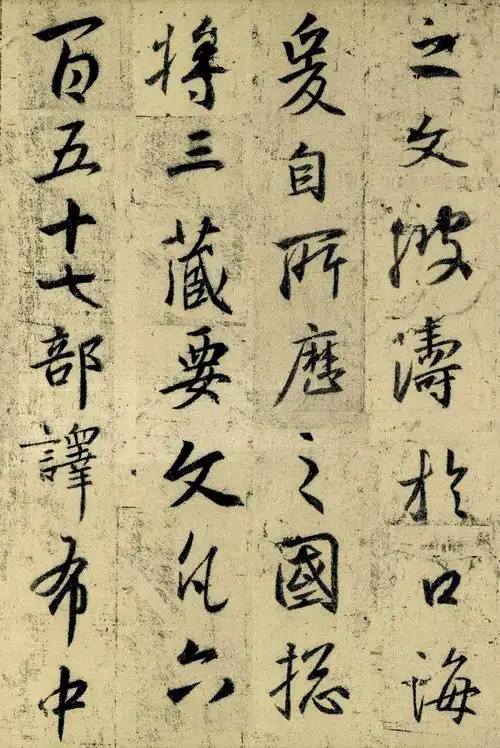 之文波濤於口海
爰自所歷之國總
將三藏要文凡六
百五十七部譯布中